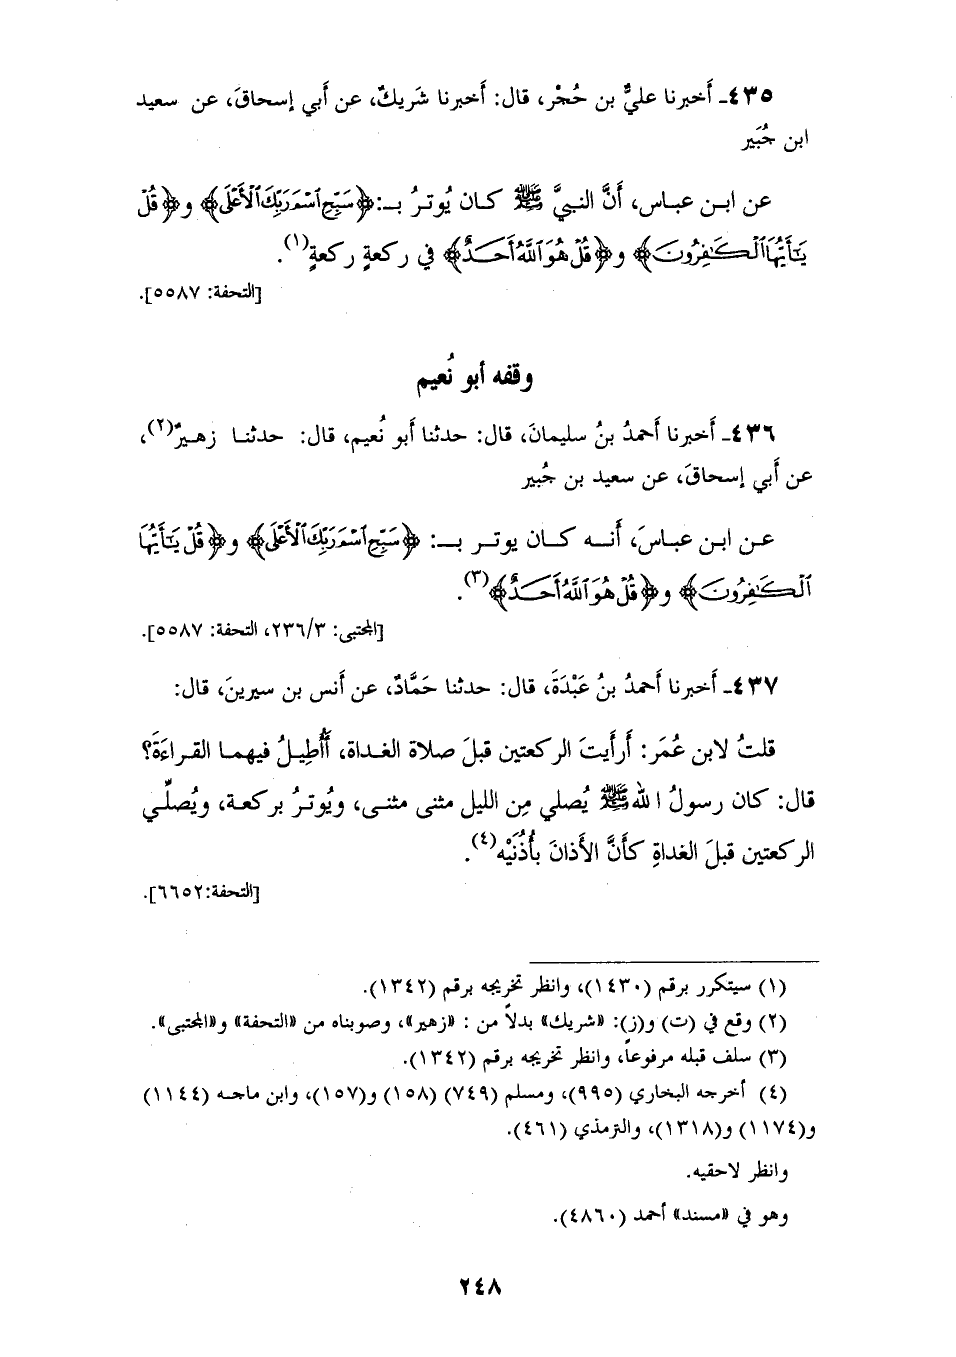 ٤٣٥ـ أَخبرنا عليُّ بن حُجْر، قال: أَخبرنا شَريكٌ، عن أَبي إسحاقَ، عن سعيد
ابن جُبَير
عن ابـن عبـاس، أَنَّ النبيَّ ﷺ كـان يُوتـرُ بــ:﴿سَبِّحِ ٱسْمَ رَبِّكَ ٱلْأَعْلَى﴾ و﴿قُلْ
يَـٰٓأَيُّهَا ٱلْكَـٰفِرُونَ﴾ و﴿قُلْ هُوَ ٱللَّهُ أَحَـدٌ﴾ في ركعةٍ ركعةٍ(١).
[التحفة: ٥٥٨٧].
وقفه أبو نُعيم
٤٣٦ـ أَخبرنا أَحمدُ بنُ سليمانَ، قال: حدثنا أَبو نُعيم، قال: حدثنـا زهـيرٌ(٢)،
عن أَبي إسحاقَ، عن سعيد بن جُبير
عـن ابـن عباسَ، أَنـه كـان يوتـر بــ: ﴿سَبِّحِ ٱسْمَ رَبِّكَ ٱلْأَعْلَى﴾ و﴿قُلْ يَـٰٓأَيُّهَا
ٱلْكَـٰفِرُونَ﴾ و﴿قُلْ هُوَ ٱللَّهُ أَحَـدٌ﴾(٣).
[المجتبى: ٢٣٦/٣، التحفة: ٥٥٨٧].
٤٣٧ـ أَخبرنا أَحمدُ بنُ عَبْدَةَ، قال: حدثنا حَمَّادٌ، عن أَنس بن سيرينَ، قال:
قلتُ لابن عُمَر: أَرأَيتَ الركعتين قبلَ صلاة الغـداة، أَأُطِيـلُ فيهمـا القـراءَةَ؟
قال: كان رسولُ الله ﷺ يُصلي مِن الليل مثنى مثنـى، ويُوتـرُ بركعـة، ويُصلّـي
الركعتين قبلَ الغداةِ كأَنَّ الأَذانَ بأُذُنَيْه(٤).
[التحفة:٦٦٥٢].
(١) سيتكرر برقم (١٤٣٠)، وانظر تخريجه برقم (١٣٤٢).
(٢) وقع في (ت) و(ز): «شريك» بدلاً من : «زهير»، وصوبناه من «التحفة» و«المجتبى».
(٣) سلف قبله مرفوعاً، وانظر تخريجه برقم (١٣٤٢).
(٤) أخرجه البخاري (٩٩٥)، ومسلم (٧٤٩) (١٥٨) و(١٥٧)، وابن ماجـه (١١٤٤)
و(١١٧٤) و(١٣١٨)، والترمذي (٤٦١).
وانظر لاحقيه.
وهو في «مسند» أحمد (٤٨٦٠).
٢٤٨